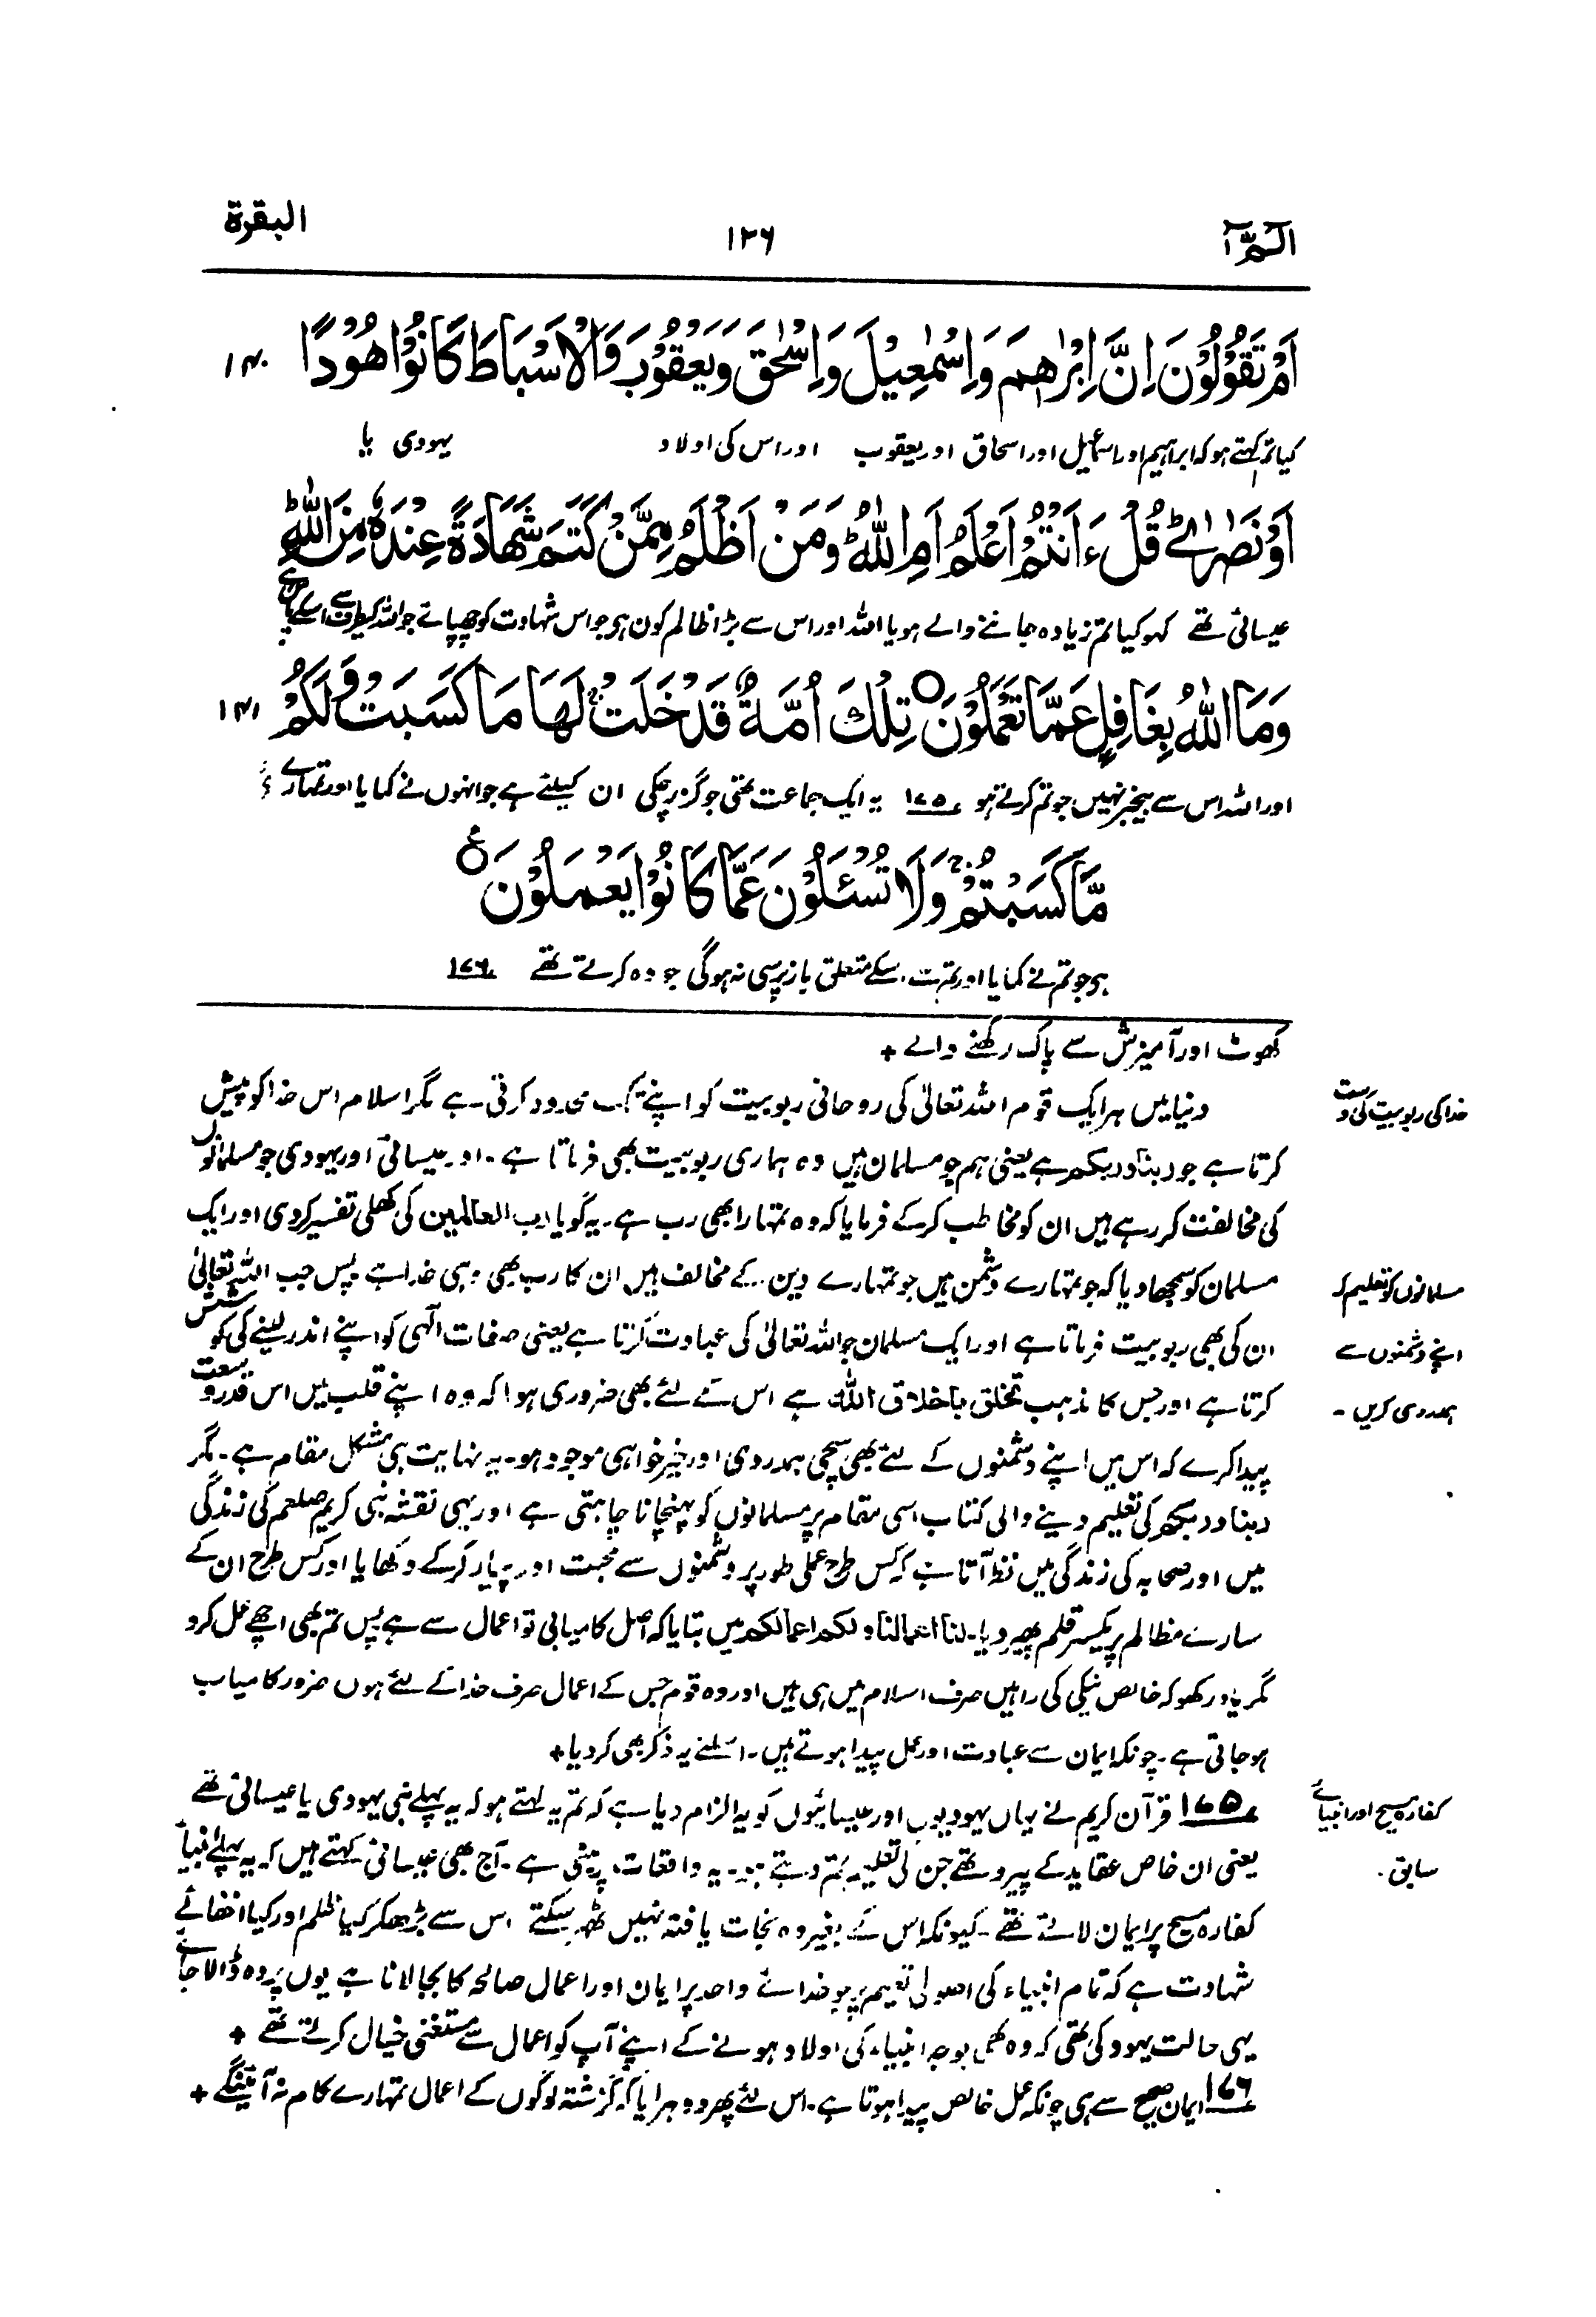 الٓمّٓ ١
١٢٦
البقرة
اَمْ تَقُوْلُوْنَ اِنَّ اِبْرٰهٖمَ وَاِسْمٰعِيْلَ وَاِسْحٰقَ وَيَعْقُوْبَ وَالْاَسْبَاطَ كَانُوْا هُوْدًا ١٤٠
کیا تم کہتے ہو کہ ابراہیم اور اسماعیل اور اسحاق اور یعقوب اور اس کی اولاد یہودی یا
اَوْ نَصٰرٰى ۭ قُلْ ءَاَنْتُمْ اَعْلَمُ اَمِ اللّٰهُ ۭ وَمَنْ اَظْلَمُ مِمَّنْ كَتَمَ شَهَادَةً عِنْدَهٗ مِنَ اللّٰهِ ۭ
عیسائی تھے کہو کیا تم زیادہ جاننے والے ہو یا اللہ اور اس سے بڑا ظالم کون ہی جو اس شہادت کو چھپائے جو اللہ کیطرف سے اسکے پاس ہے
وَمَا اللّٰهُ بِغَافِلٍ عَمَّا تَعْمَلُوْنَ ○ تِلْكَ اُمَّةٌ قَدْ خَلَتْ ۚ لَهَا مَا كَسَبَتْ وَلَكُمْ ١٤١
اور اللہ اس سے بیخبر نہیں جو تم کرتے ہو ۱۷۵ یہ ایک جماعت تھی جو گزر چکی ان کیلئے ہے جو انہوں نے کمایا اور تمہارے لئے
مَّا كَسَبْتُمْ ۚ وَلَا تُسْئَلُوْنَ عَمَّا كَانُوْا يَعْمَلُوْنَ ○ ع
ہی جو تم نے کمایا اور تم سے اسکے متعلق باز پرسی نہ ہوگی جو وہ کرتے تھے ۱۷۶
کھوٹ اور آمیزش سے پاک رکھنے والے +
خدا کی ربوبیت کی وسعت
دنیا میں ہر ایک قوم اللہ تعالیٰ کی روحانی ربوبیت کو اپنے تک محدود کرتی ہے مگر اسلام اس خدا کو پیش
کرتا ہے جو ربنا وربکم ہے یعنی ہم جو مسلمان ہیں وہ ہماری ربوبیت بھی فرماتا ہے۔ اور عیسائی اور یہودی جو مسلمانوں
کی مخالفت کر رہے ہیں ان کو مخاطب کر کے فرمایا کہ وہ تمہارا بھی رب ہے۔ یہ گویا رب العالمین کی کھلی تفسیر کر دی اور ایک
مسلمانوں کو تعلیم کہ
مسلمان کو سمجھا دیا کہ جو تمہارے دشمن ہیں جو تمہارے دین کے مخالف ہیں ان کا رب بھی وہی خدا ہے پس جب اللہ تعالیٰ
اپنے دشمنوں سے
ان کی بھی ربوبیت فرماتا ہے اور ایک مسلمان جو اللہ تعالیٰ کی عبادت کرتا ہے یعنی صفات الٰہی کو اپنے اندر لینے کی کوشش
ہمدردی کریں۔
کرتا ہے اور جس کا مذہب تخلق باخلاق اللہ ہے اس کے لئے بھی ضروری ہوا کہ وہ اپنے قلب میں اس قدر وسعت
پیدا کرے کہ اس میں اپنے دشمنوں کے لئے بھی سچی ہمدردی اور خیر خواہی موجود ہو۔ یہ نہایت ہی مشکل مقام ہے۔ مگر
ربنا وربکم کی تعلیم دینے والی کتاب اسی مقام پر مسلمانوں کو پہنچانا چاہتی ہے اور یہی نقشہ نبی کریم صلعم کی زندگی
میں اور صحابہ کی زندگی میں نظر آتا ہے کہ کس طرح عملی طور پر دشمنوں سے محبت اور پیار کرکے دکھایا اور کس طرح ان کے
سارے مظالم پر یکسر قلم پھیر دیا۔ لنا اعمالنا ولکم اعمالکم میں بتایا کہ اصل کامیابی تو اعمال سے ہے پس تم بھی اچھے عمل کرو
مگر یاد رکھو کہ خالص نیکی کی راہیں صرف اسلام میں ہی ہیں اور وہ قوم جس کے اعمال صرف خدا کے لئے ہوں ضرور کامیاب
ہو جاتی ہے۔ چونکہ ایمان سے عبادت اور عمل پیدا ہوتے ہیں۔ اسلئے یہ ذکر بھی کر دیا +
کفارہ مسیح اور انبیائے
۱۷۵ قرآن کریم نے یہاں یہودیوں اور عیسائیوں کو یہ الزام دیا ہے کہ تم یہ کہتے ہو کہ یہ پہلے نبی یہودی یا عیسائی تھے
سابق۔
یعنی ان خاص عقاید کے پیرو تھے جن کی تعلیم تم دیتے ہو۔ یہ واقعات پر مبنی ہے۔ آج بھی عیسائی کہتے ہیں کہ یہ پہلے انبیاء
کفارہ مسیح پر ایمان لائے تھے۔ کیونکہ اس کے بغیر وہ نجات یافتہ نہیں ٹھہر سکتے اس سے بڑھکر کیا ظلم اور کیا اخفائے
شہادت ہے کہ تمام انبیاء کی اصولی تعلیم پر جو خدائے واحد پر ایمان اور اعمال صالحہ کا بجا لانا ہے یوں پردہ ڈالا جائے
یہی حالت یہود کی تھی کہ وہ بھی بوجہ انبیاء کی اولاد ہونے کے اپنے آپ کو اعمال سے مستغنی خیال کرتے تھے +
۱۷۶ ایمان صحیح سے ہی چونکہ عمل خالص پیدا ہوتا ہے۔ اس لئے پھر دوہرایا کہ گزشتہ لوگوں کے اعمال تمہارے کام نہ آئینگے +